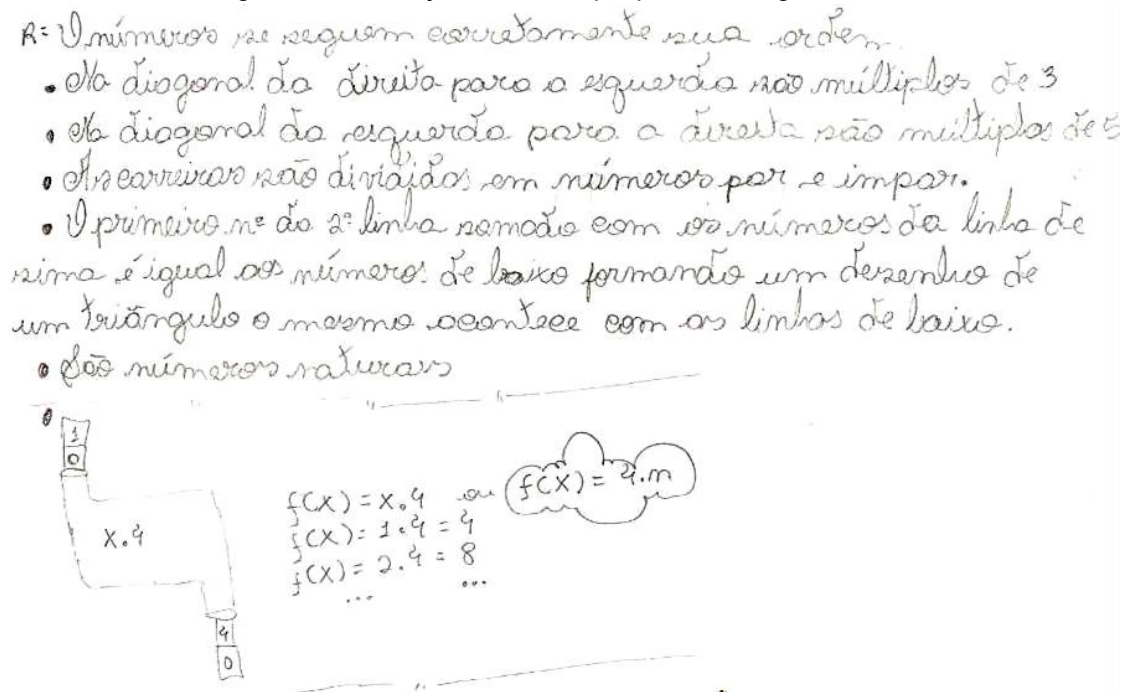 R= O números se seguem corretamente sua ordem.
• Na diagonal da direita para a esquerda são múltiplos de 3
• Na diagonal da esquerda para a direita são múltiplos de 5
• As carreiras são divididas em números par e impar.
• O primeiro nº da 2ª linha somado com os números da linha de
sima é igual aos números de baixo formando um desenho de
um triângulo o mesmo acontece com as linhas de baixo.
• São números naturais
•
1
0
X.4
4
0
f(X) = X.4 ou f(X) = 4.n
f(X) = 1.4 = 4
f(X) = 2.4 = 8
... ...